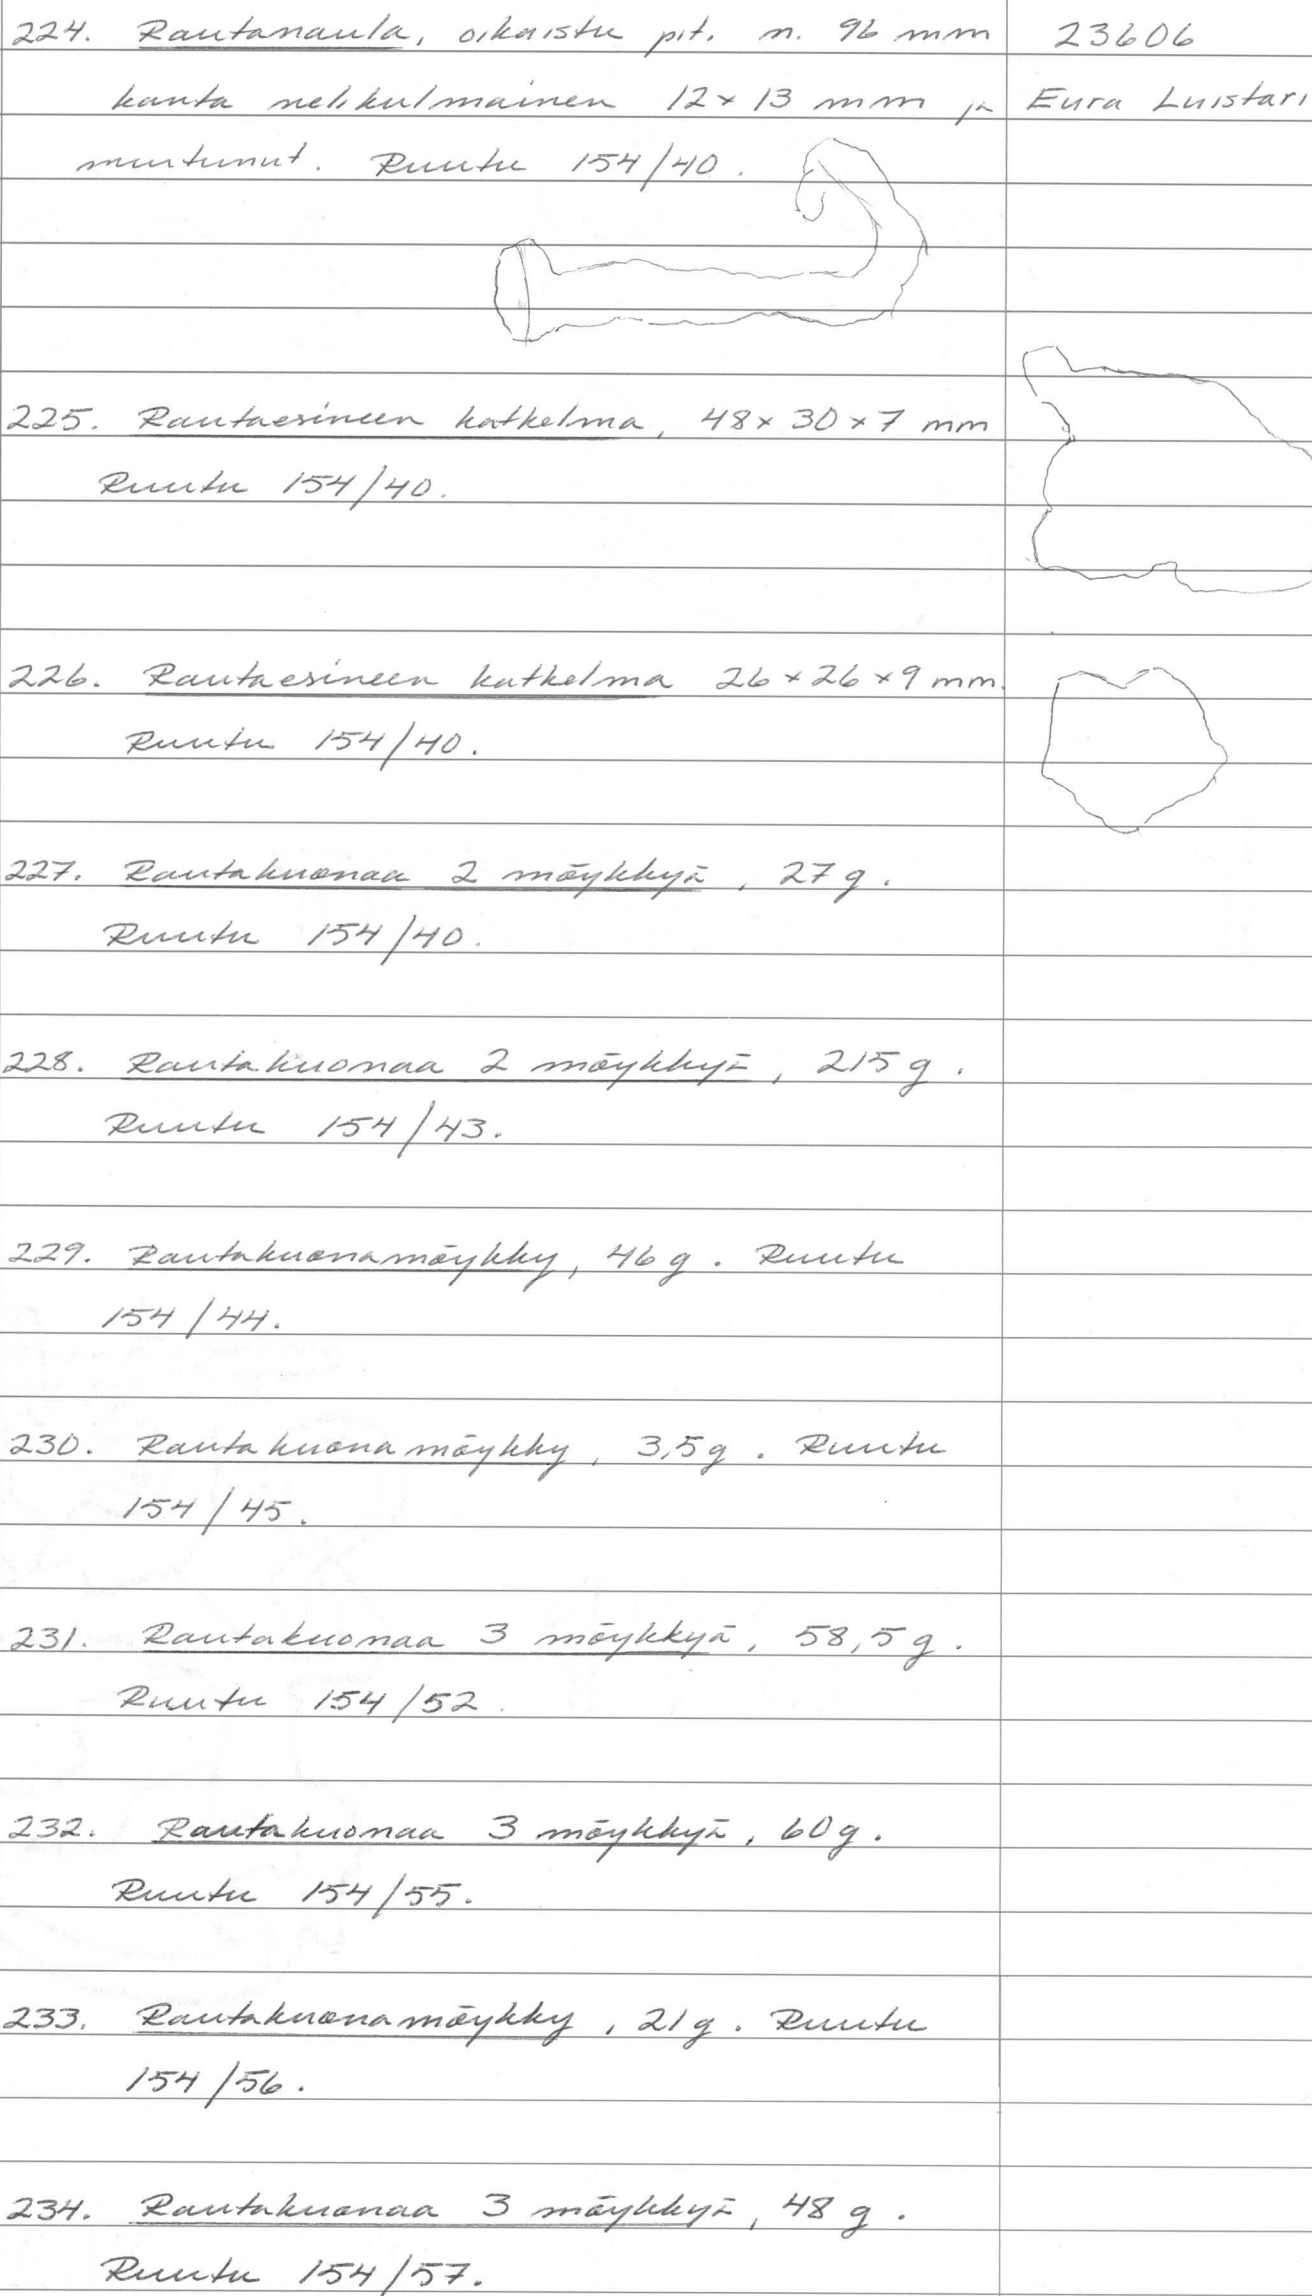 224. Rautanaula, oikaistu pit. n. 96 mm
kanta nelikulmainen 12 x 13 mm ja
murtunut. Ruutu 154/40.
23606
Eura Luistari
225. Rautaesineen katkelma, 48 x 30 x 7 mm
Ruutu 154/40.
226. Rautaesineen katkelma 26 x 26 x 9 mm.
Ruutu 154/40.
227. Rautakuonaa 2 möykkyä, 27 g.
Ruutu 154/40.
228. Rautakuonaa 2 möykkyä, 215 g.
Ruutu 154/43.
229. Rautakuonamöykky, 46 g. Ruutu
154/44.
230. Rautakuonamöykky, 3,5 g. Ruutu
154/45.
231. Rautakuonaa 3 möykkyä, 58,5 g.
Ruutu 154/52.
232. Rautakuonaa 3 möykkyä, 60 g.
Ruutu 154/55.
233. Rautakuonamöykky, 21 g. Ruutu
154/56.
234. Rautakuonaa 3 möykkyä, 48 g.
Ruutu 154/57.